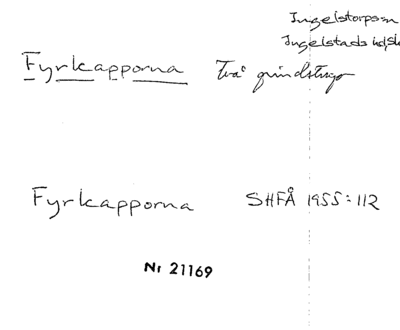 Ingelstorpssn
Ingelstads hd, Sk
Fyrkapporna Två grindstugor
Fyrkapporna SHFÅ 1955:112
Nr 21169